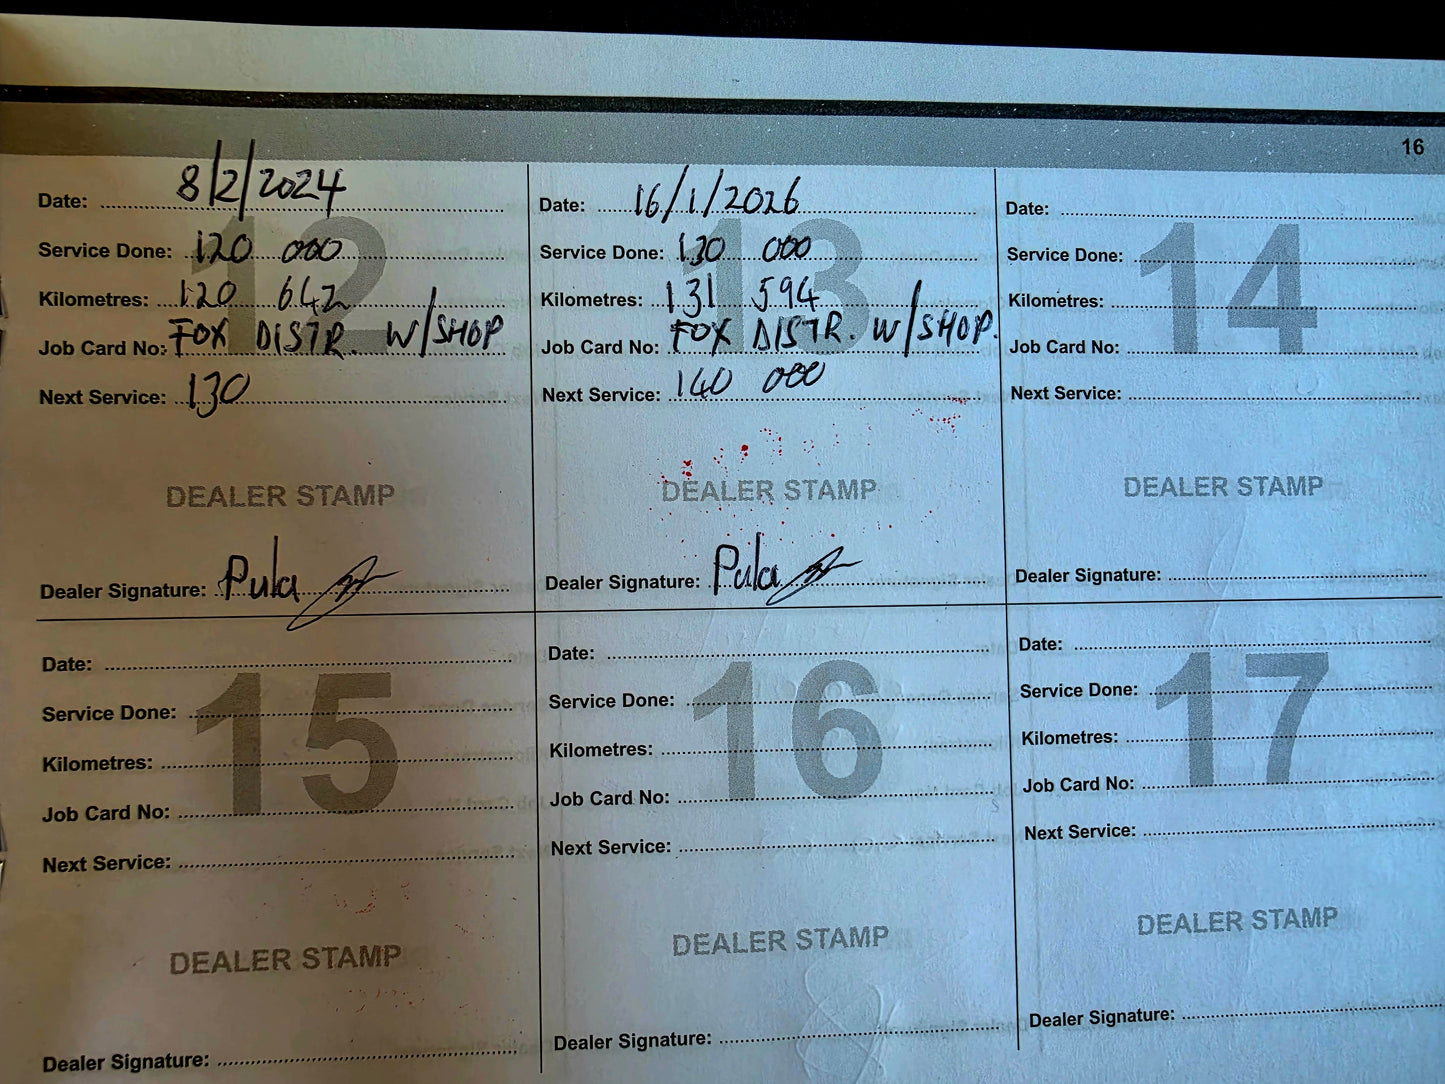 16
12
Date: 8/2/2024
Service Done: 120 000
Kilometres: 120 642
Job Card No: FOX DISTR. W/SHOP
Next Service: 130
DEALER STAMP
Dealer Signature: Pula
13
Date: 16/1/2026
Service Done: 130 000
Kilometres: 131 594
Job Card No: FOX DISTR. W/SHOP.
Next Service: 140 000
DEALER STAMP
Dealer Signature: Pula
14
Date:
Service Done:
Kilometres:
Job Card No:
Next Service:
DEALER STAMP
Dealer Signature:
15
Date:
Service Done:
Kilometres:
Job Card No:
Next Service:
DEALER STAMP
Dealer Signature:
16
Date:
Service Done:
Kilometres:
Job Card No:
Next Service:
DEALER STAMP
Dealer Signature:
17
Date:
Service Done:
Kilometres:
Job Card No:
Next Service:
DEALER STAMP
Dealer Signature: